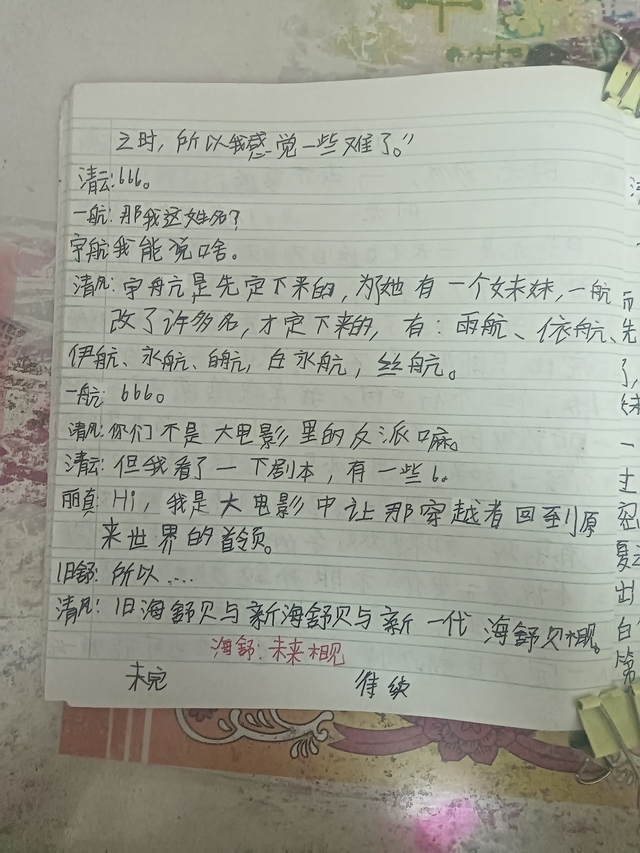 之时，所以我感觉一些难了。”
清云：666。
一航：那我这姓名？
宇航：我能说啥。
清凡：宇航是先定下来的，为她有一个妹妹，一航
改了许多名，才定下来的，有：雨航、依航、
伊航、永航、白航，丘永航，丝航。
一航：666。
清凡：你们不是大电影里的反派嘛。
清云：但我看了一下剧本，有一些6。
丽真：Hi，我是大电影中让那穿越者回到原
来世界的首领。
旧舒：所以....
清凡：旧海舒贝与新海舒贝与新一代海舒贝相见。
海舒：未来相见
未完 待续